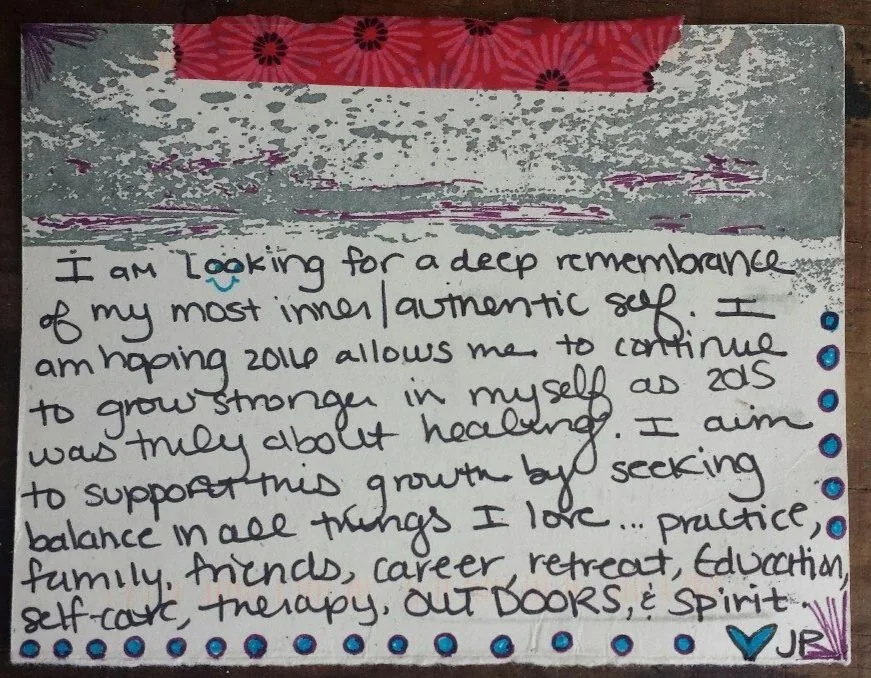 I am looking for a deep remembrance
of my most inner/authentic self. I
am hoping 2016 allows me to continue
to grow stronger in myself as 2015
was truly about healing. I aim
to support this growth by seeking
balance in all things I love... practice,
family, friends, career, retreat, Education,
self-care, therapy, OUTDOORS, & spirit.
JR